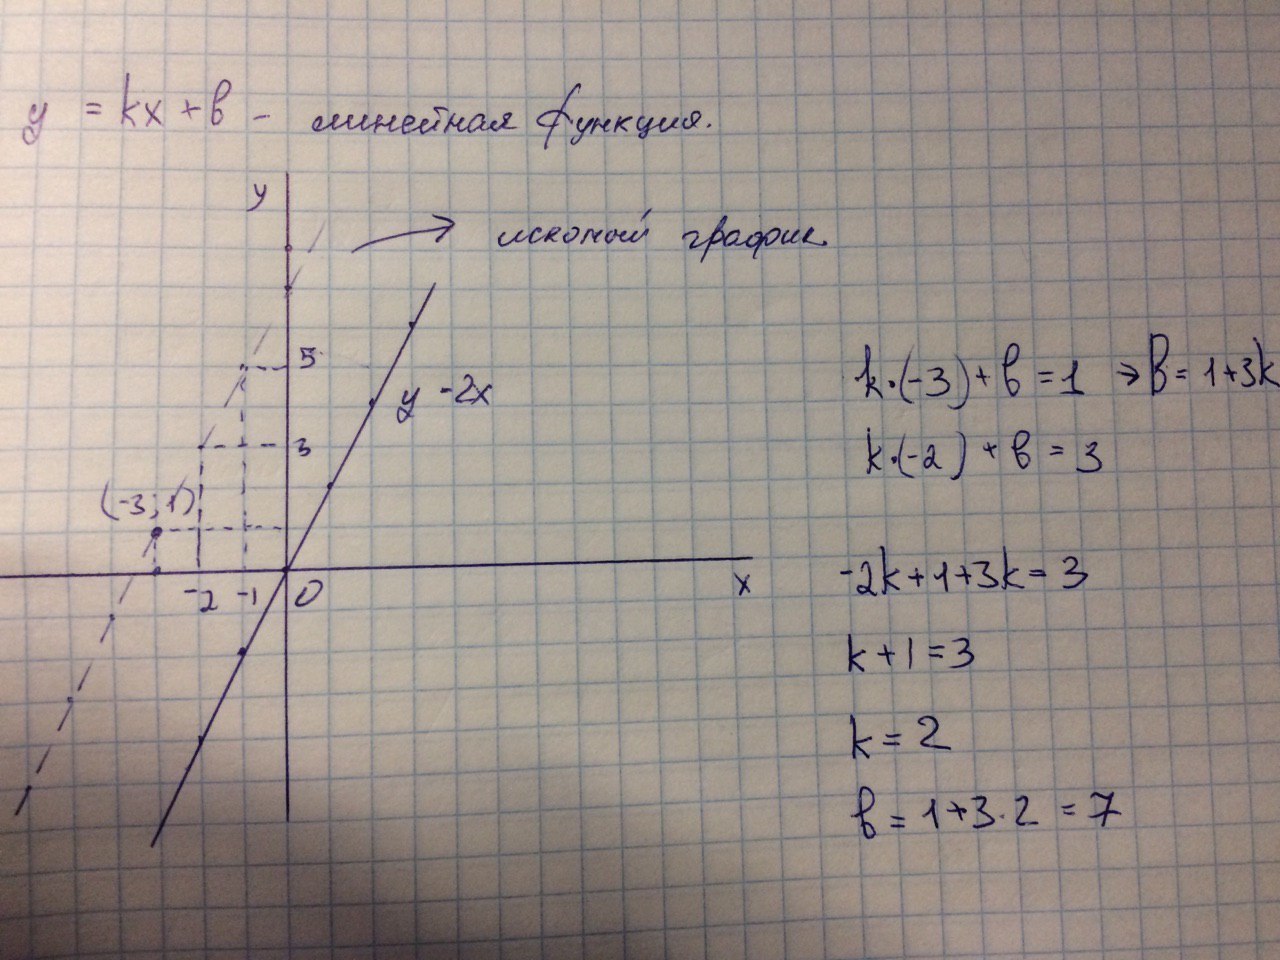 y = kx + в – линейная функция.
y
искомый график
5
y -2x
3
(-3; 1)
-2 -1 0
x
k·(-3) + в = 1 → в = 1+3k
k·(-2) + в = 3
-2k+1+3k = 3
k+1=3
k = 2
в = 1+3·2 = 7